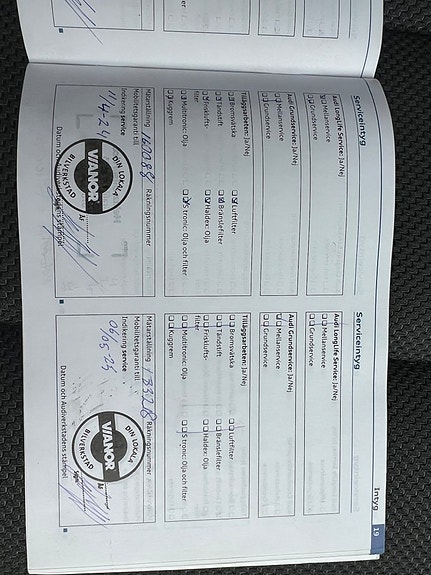 Intyg 19
Serviceintyg
Audi LongLife Service: Ja/Nej
Mellanservice
Grundservice
Audi Grundservice: Ja/Nej
Mellanservice
Grundservice
Tilläggsarbeten: Ja/Nej
Bromsvätska Luftfilter
Tändstift Bränslefilter
Friskluftsfilter Haldex: Olja
Multitronic: Olja S tronic: Olja och filter
Kuggrem
Mätarställning 160088 Räkningsnummer
Mobilitetsgaranti till
Indikering service
11/4-24
DIN LOKALA
VIANOR
BILVERKSTAD
Datum och Audiverkstadens stämpel
Serviceintyg
Audi LongLife Service: Ja/Nej
Mellanservice
Grundservice
Audi Grundservice: Ja/Nej
Mellanservice
Grundservice
Tilläggsarbeten: Ja/Nej
Bromsvätska Luftfilter
Tändstift Bränslefilter
Friskluftsfilter Haldex: Olja
Multitronic: Olja S tronic: Olja och filter
Kuggrem
Mätarställning Räkningsnummer
Mobilitetsgaranti till
Indikering service
06/05-25
DIN LOKALA
VIANOR
BILVERKSTAD
Sign.
Datum och Audiverkstadens stämpel